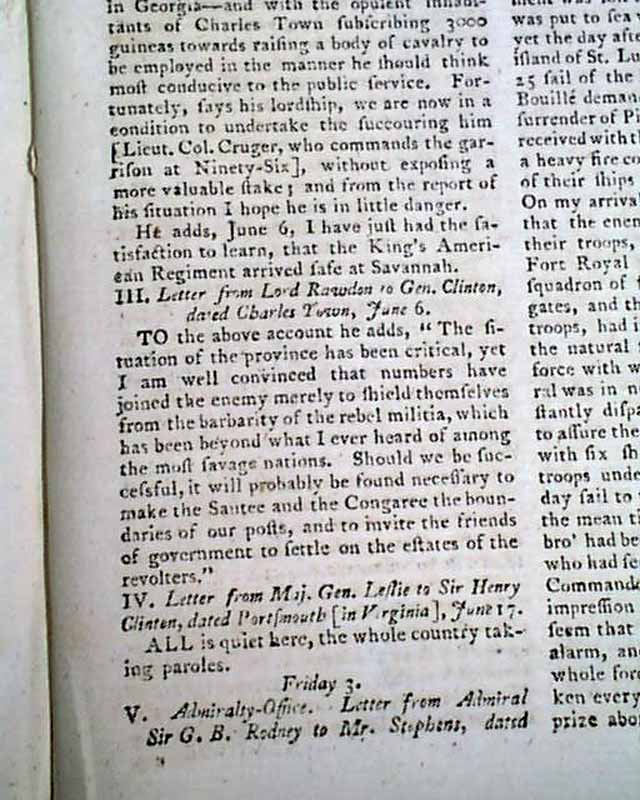 in Georgia—and with the opulent inhabi-
tants of Charles Town ſubſcribing 3000
guineas towards raiſing a body of cavalry to
be employed in the manner he ſhould think
moſt conducive to the public ſervice. For-
tunately, ſays his lordſhip, we are now in a
condition to undertake the ſuccouring him
[Lieut. Col. Cruger, who commands the gar-
riſon at Ninety-Six], without expoſing a
more valuable ſtake; and from the report of
his ſituation I hope he is in little danger.
He adds, June 6, I have juſt had the ſa-
tisfaction to learn, that the King's Ameri-
can Regiment arrived ſafe at Savannah.
III. Letter from Lord Rawdon to Gen. Clinton,
dated Charles Town, June 6.
TO the above account he adds, "The ſi-
tuation of the province has been critical, yet
I am well convinced that numbers have
joined the enemy merely to ſhield themſelves
from the barbarity of the rebel militia, which
has been beyond what I ever heard of among
the moſt ſavage nations. Should we be ſuc-
ceſsful, it will probably be found neceſſary to
make the Santee and the Congaree the boun-
daries of our poſts, and to invite the friends
of government to ſettle on the eſtates of the
revolters."
IV. Letter from Maj. Gen. Leſlie to Sir Henry
Clinton, dated Portſmouth [in Virginia], June 17.
ALL is quiet here, the whole country tak-
ing paroles.
Friday 3.
V. Admiralty-Office. Letter from Admiral
Sir G. B. Rodney to Mr. Stephens, dated
was put to ſea
yet the day afte
iſland of St. Lu
25 ſail of the
Bouillé deman
ſurrender of Pi
received with t
a heavy fire co
of their ſhips
On my arriva
that the enem
their troops,
Fort Royal
ſquadron of
gates, and th
troops, had i
the natural
force with w
ral was in n
ſtantly diſpa
to aſſure the
with ſix ſh
troops unde
day ſail to
the mean ti
bro' had be
who had ſe
Commande
impreſſion
ſeem that
alarm, an
whole forc
ken every
prize abo